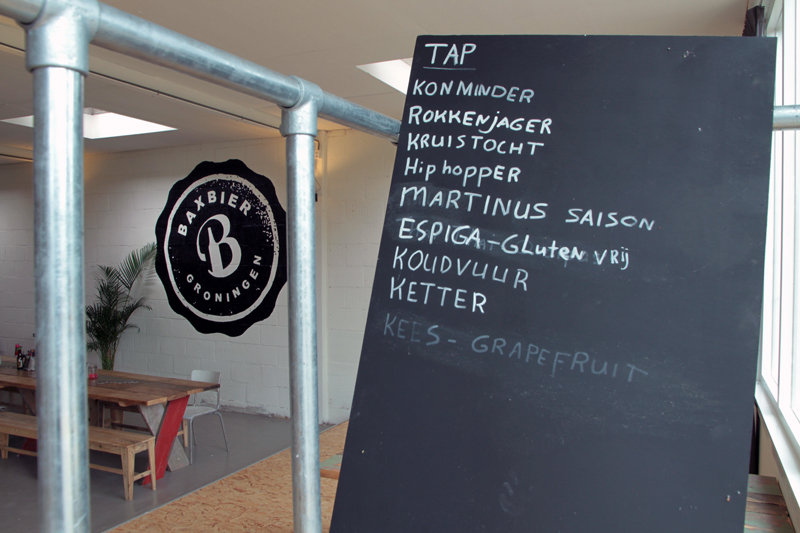 BAXBIER
B
GRONINGEN
TAP
KONMINDER
ROKKENJAGER
KRUISTOCHT
HiphoppER
MARTINUS SAISON
ESPIGA-GLuten VRij
KOUDVUUR
KETTER
KEES-GRAPEFRUIT